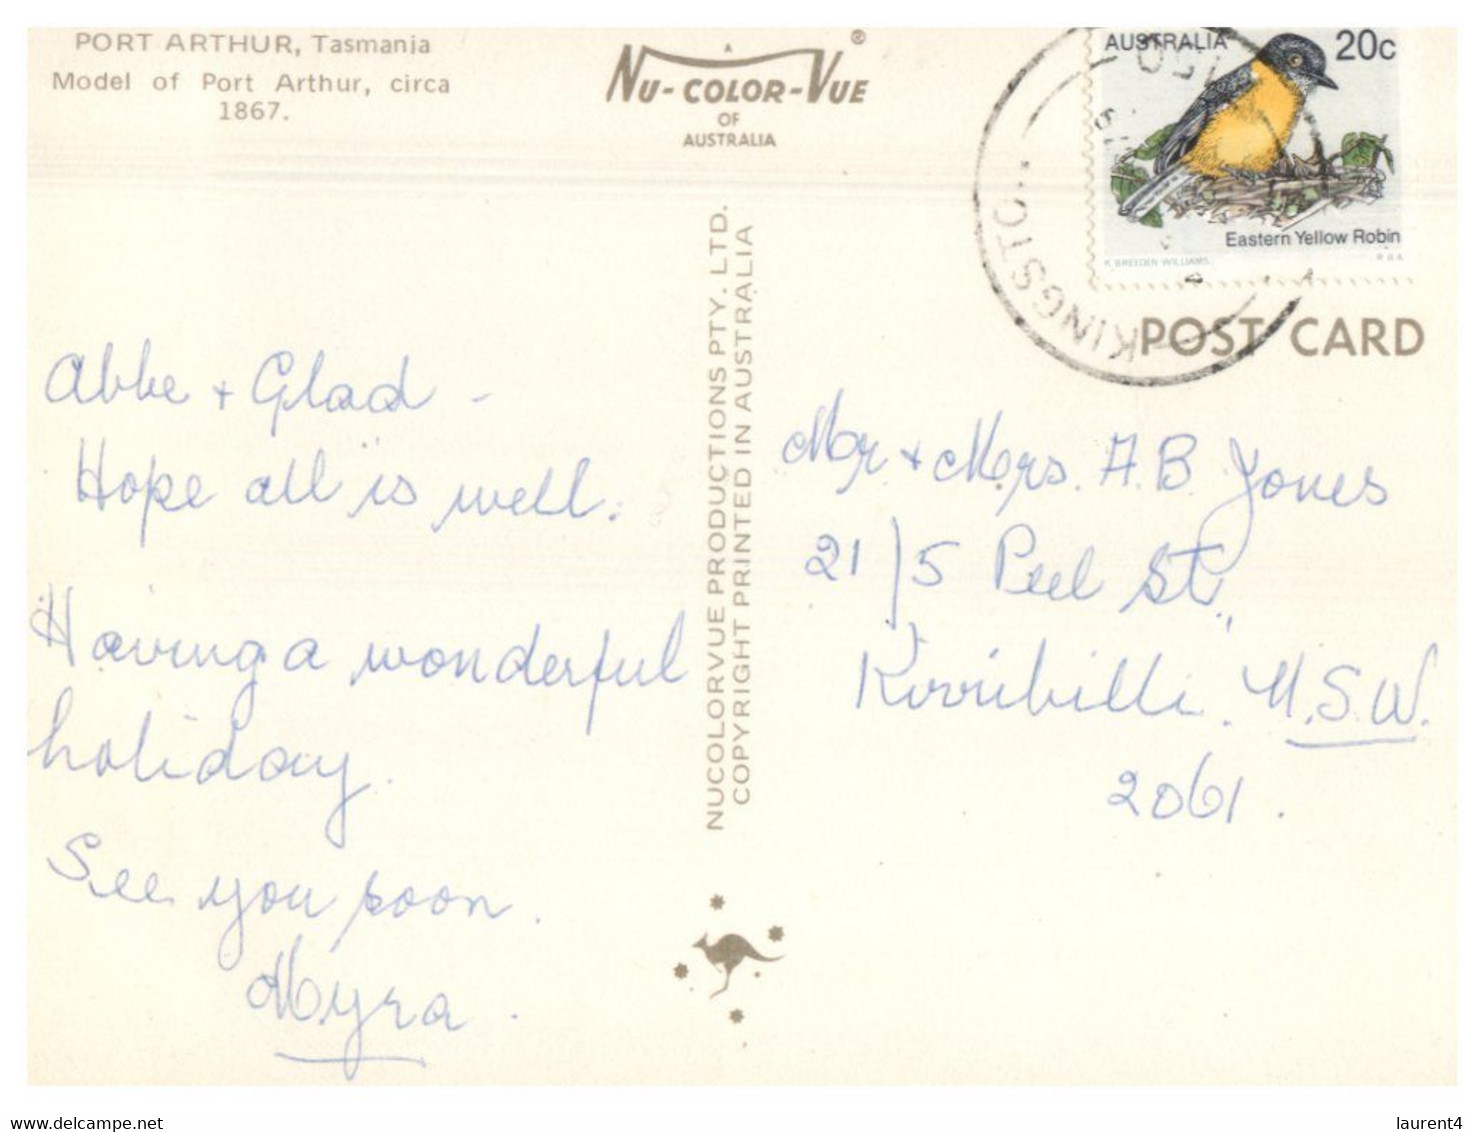 PORT ARTHUR, Tasmania
Model of Port Arthur, circa
1867.
A
NU-COLOR-VUE®
OF
AUSTRALIA
AUSTRALIA 20c
Eastern Yellow Robin
K BREEDEN WILLIAMS
R B A
KINGSTO
POST CARD
NUCOLORVUE PRODUCTIONS PTY. LTD.
COPYRIGHT PRINTED IN AUSTRALIA
Abbe + Glad -
Hope all is well.
Having a wonderful
holiday.
See you soon.
Myra.
Mr + Mrs. A.B Jones
21/5 Peel St.,
Kirribilli. N.S.W.
2061.
delcampe.net
laurent4